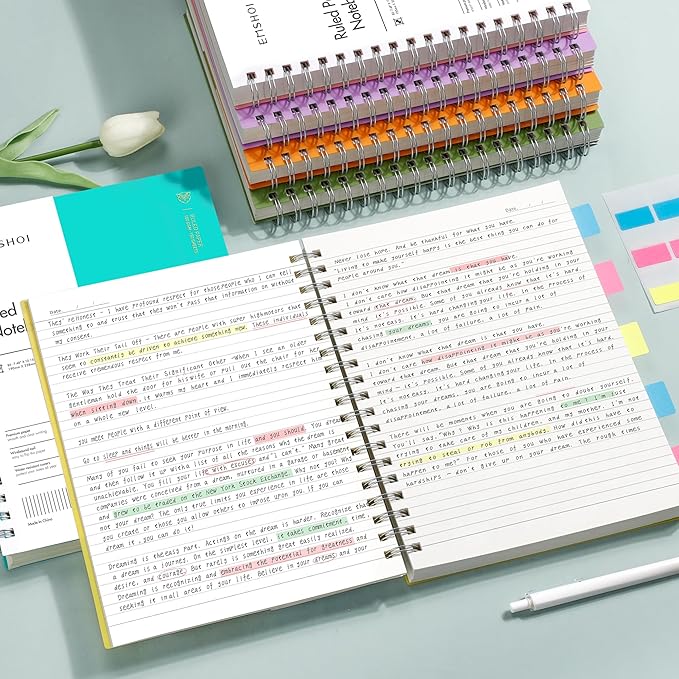 EMSHOI
Ruled P
Noteb
RULED PAPER
SHOI
ed
Note
Premium paper
Made in China
Date / /
They're honest - I have profound respect for those people who I can tell
something to and trust that they won't pass that information on without
my consent.
They Work Their Tail Off - There are people with super high motors that
seem to constantly be driven to achieve something new. These individuals
receive tremendous respect from me.
The Way They Treat Their Significant Other - When I see an older
gentleman hold the door for his wife or pull out the chair for her
when sitting down, it warms my heart and I immediately respect him
on a whole new level.
you meet people with a different point of view.
Go to sleep and things will be better in the morning.
Many of you fail to seek your purpose in life and you should. You dream
and then follow it up with a list of all the reasons why the dream is
unachievable. You fill your life with excuses and "I can't." Many great
companies were conceived from a dream, nurtured in a garage or basement
and grew to be traded on the New York Stock Exchange. Why not you? Why
not your dream? The only true limits you experience in life are those
you create or those you allow others to impose upon you. If you can
dream it, you can do it!
Dreaming is the easy part. Acting on the dream is harder. Recognize that
a dream is a journey. On the simplest level, it takes commitment, time,
desire, and courage. But rarely is something great easily realized.
Dreaming is recognizing and embracing the potential for greatness and
seeking it in all areas of your life. Believe in your dreams and your
Date / /
Never lose hope. And be thankful for what you have.
"Living to make yourself happy is the best thing you can do for
people around you.
I don't know what that dream is that you have.
I don't care how disappointing it might be as you're working
toward that dream. But that dream that you're holding in your
mind, it's possible. Some of you already know that it's hard
it's not easy. It's hard changing your life. In the process of
chasing your dreams, you are going to incur a lot of
disappointment, a lot of failure, a lot of pain.
I don't know what that dream is that you have.
I don't care how disappointing it might be as you're working
toward that dream. But that dream that you're holding in your
mind, it's possible. Some of you already know that it's hard
it's not easy. It's hard changing your life. In the process of
chasing your dreams, you are going to incur a lot of
disappointment, a lot of failure, a lot of pain.
There will be moments when you are going to doubt yourself.
You'll say, "Why? Why is this happening to me I I'm just
trying to take care of my children, and my mother. I'm not
trying to steal or rob from anybody. How did this have to
happen to me?" For those of you who have experienced some
hardships - don't give up on your dream. The rough times